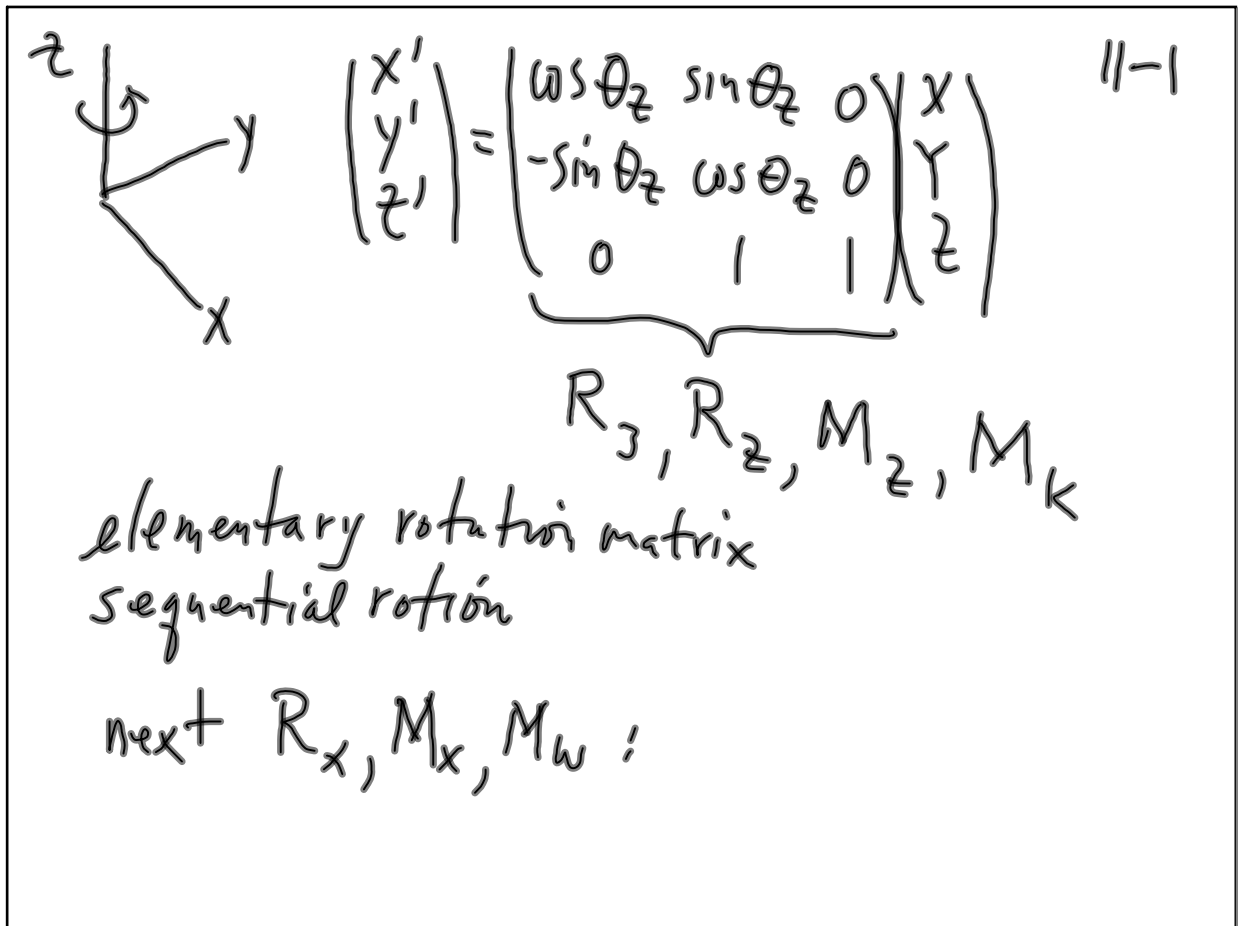 z
y
x
(x' y' z') = (cos θz sin θz 0
-sin θz cos θz 0
0 1 1) (X Y Z)
11-1
R3, Rz, Mz, MK
elementary rotation matrix
sequential rotion
next Rx, Mx, Mw :